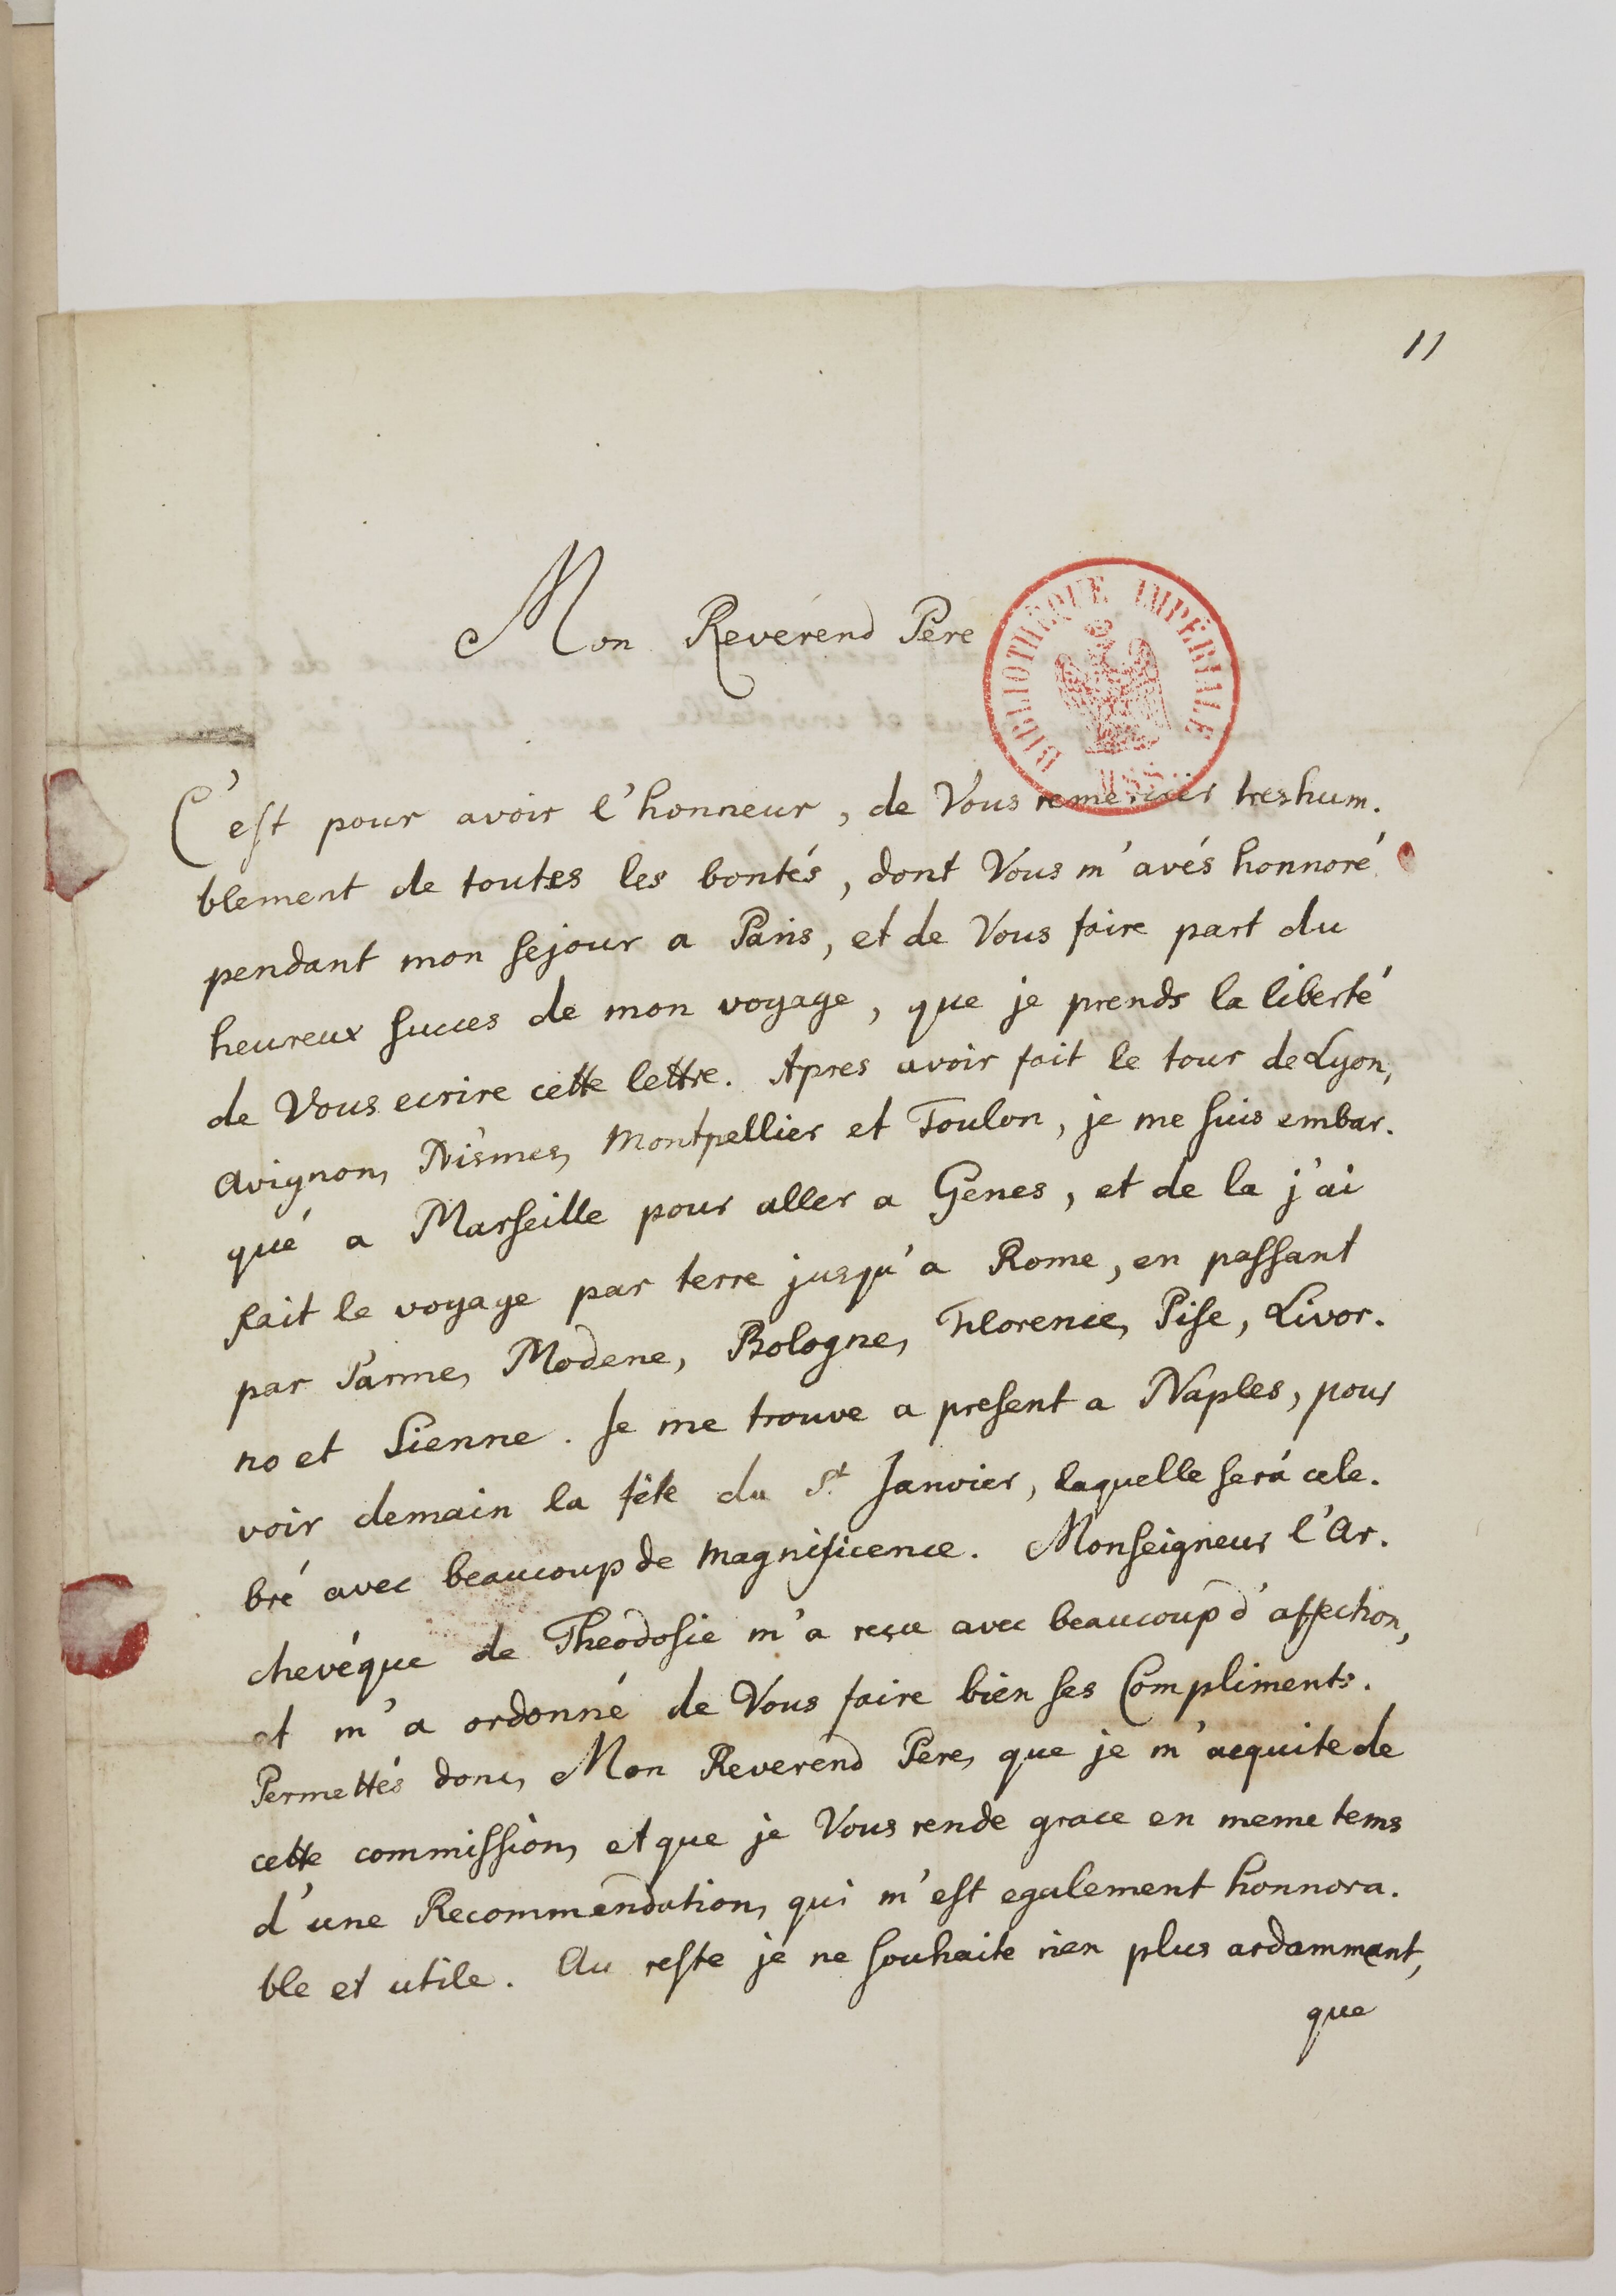 11
Mon Reverend Pere
BIBLIOTHÈQUE IMPÉRIALE
MSS.
C'est pour avoir l'honneur, de Vous remercier treshum.
blement de toutes les bontés, dont Vous m'avés honnoré
pendant mon sejour a Paris, et de Vous faire part du
heureux succes de mon voyage, que je prends la liberté
de Vous ecrire cette lettre. Apres avoir fait le tour de Lyon,
Avignon, Nismes, Montpellier et Toulon, je me suis embar.
qué a Marseille pour aller a Genes, et de la j'ai
fait le voyage par terre jusqu'a Rome, en passant
par Parme, Modene, Bologne, Florence, Pise, Livor.
no et Sienne. Je me trouve a present a Naples, pour
voir demain la fête du St Janvier, laquelle será cele.
bré avec beaucoup de magnificence. Monseigneur l'Ar.
chevéque de Theodosie m'a reçu avec beaucoup d'affection,
et m'a ordonné de Vous faire bien ses Compliments.
Permettés donc, Mon Reverend Pere, que je m'acquite de
cette commission, et que je Vous rende grace en meme tems
d'une Recommendation, qui m'est egalement honnora.
ble et utile. Au reste je ne souhaite rien plus ardamment,
que